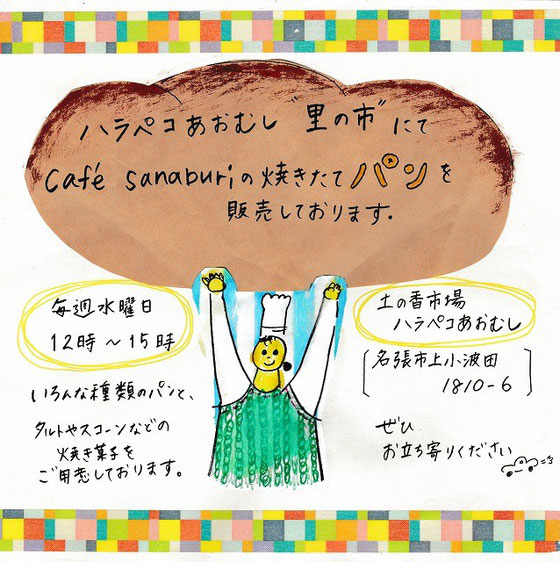 ハラペコあおむし"里の市"にて
café sanaburiの焼きたてパンを
販売しております。
毎週水曜日
12時〜15時
いろんな種類のパンと、
タルトやスコーンなどの
焼き菓子を
ご用意しております。
土の香市場
ハラペコあおむし
名張市上小波田
1810-6
ぜひ
お立ち寄りください